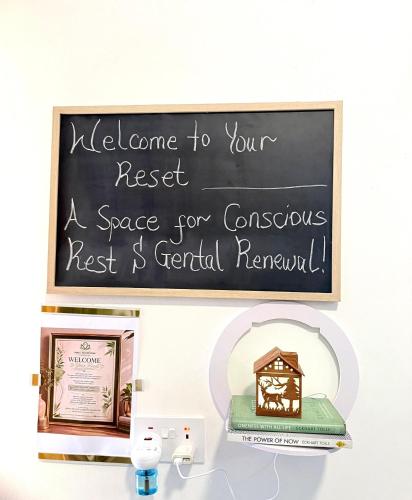 Welcome to Your
Reset
A Space for Conscious
Rest & Gental Renewal!
WELCOME
ONENESS WITH ALL LIFE ECKHART TOLLE
THE POWER OF NOW ECKHART TOLLE